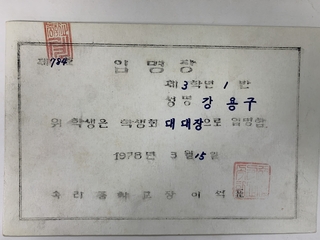 제 784
임 명 장
제 3 학년 1 반
성명 강 용 구
위 학생은 학생회 대대장으로 임명함
1978 년 3 월 15 일
속 리 중 학 교 장 이